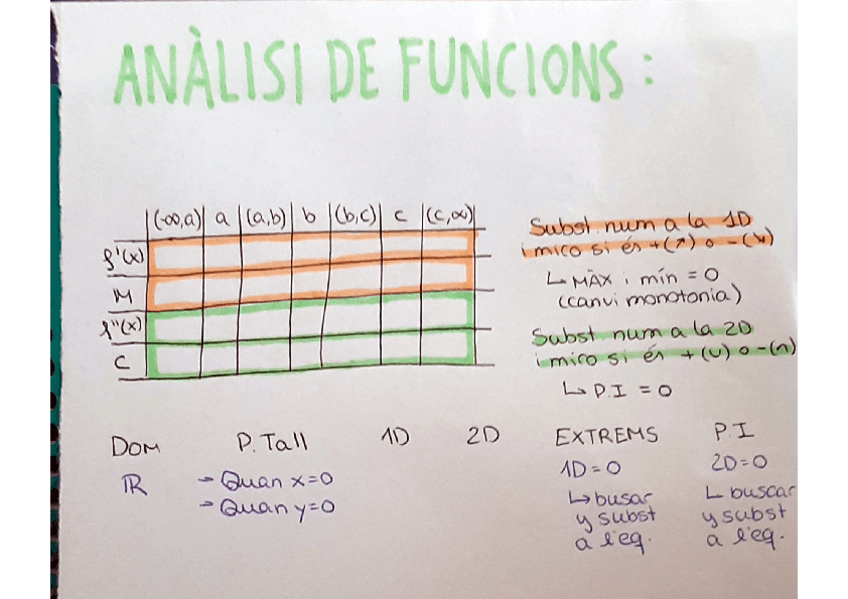 ANÀLISI DE FUNCIONS:
(-∞,a) a (a,b) b (b,c) c (c,∞)
f'(x)
M
f''(x)
C
Subst. num a la 1D
i miro si és +(↗) o -(↘)
↳ MÀX i mín = 0
(canvi monotonia)
Subst. num a la 2D
i miro si és +(∪) o -(∩)
↳ P.I = 0
DOM P.Tall 1D 2D EXTREMS P.I
ℝ → Quan x=0 1D=0 2D=0
→ Quan y=0 ↳ busar ↳ buscar
y subst y subst
a l'eq. a l'eq.